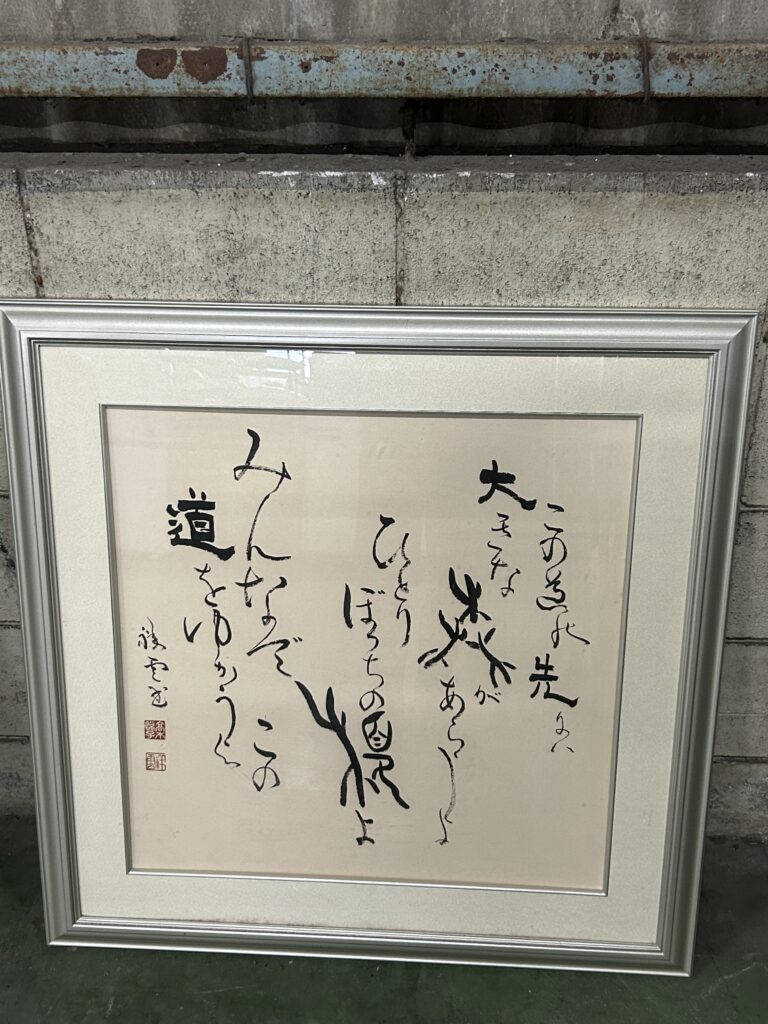 この道の先には
大きな森があらうよ
ひとり
ぼっちの榎よ
みんなで この
道をゆかうよ